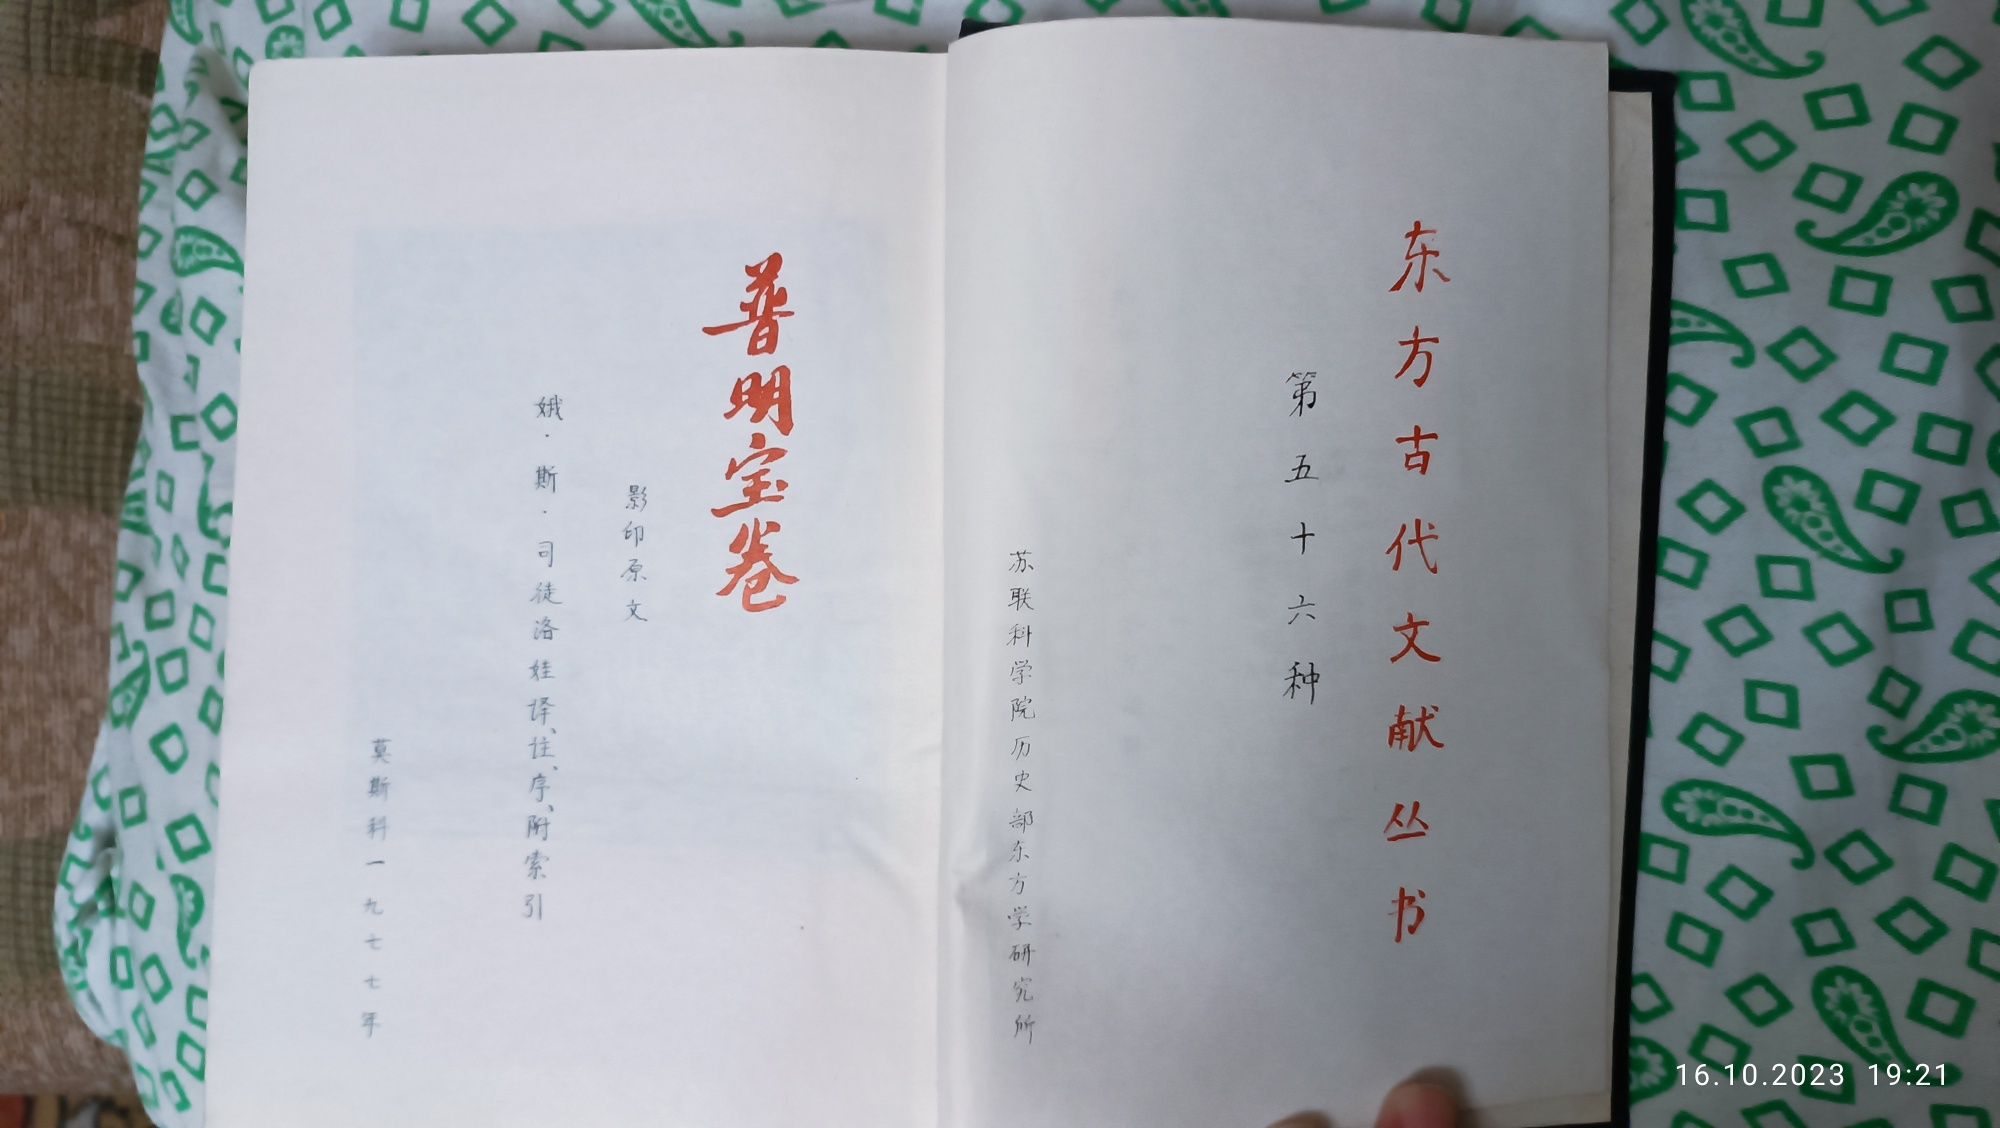 东方古代文献丛书
第五十六种
苏联科学院历史部东方学研究所
普明宝卷
影印原文
娥·斯·司徒洛娃译、注、序、附索引
莫斯科一九七七年
16.10.2023 19:21